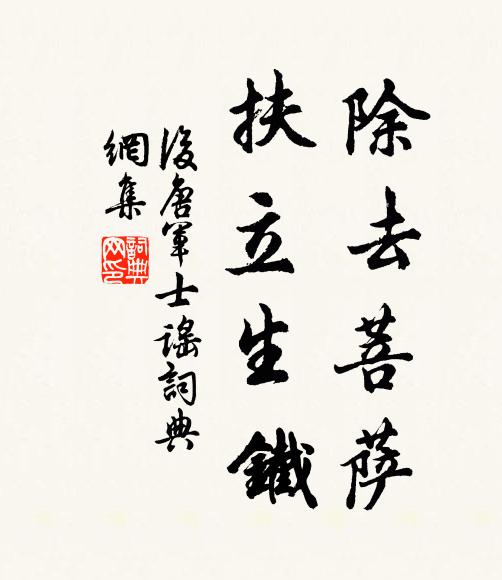 除去菩萨
扶立生鐵
後唐軍士謠詞典
網集
詞典网印